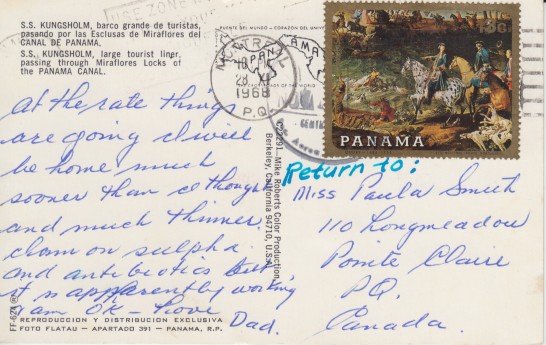 S.S. KUNGSHOLM, barco grande de turistas,
pasando por las Esclusas de Miraflores del
CANAL DE PANAMA.
S.S. KUNGSHOLM, large tourist linqr.
passing through Miraflores Locks of
the PANAMA CANAL.
PUENTE DEL MUNDO - CORAZON DEL
MONTREAL
28 XI
1968
P.Q.
PANAMA
At the rate things
are going I will
be home much
sooner than I thought
and much thinner.
I am on sulpha
and antibiotics but
it is apparently working
I am OK - Love
Dad.
C22291-Mike Roberts Color Production,
Berkeley, California 94710, U.S.A.
FF-624 ®
REPRODUCCION Y DISTRIBUCION EXCLUSIVA
FOTO FLATAU - APARTADO 391 - PANAMA, R.P.
Return to:
Miss Paula Smith
110 Longmeadow
Pointe Claire
P.Q.
Canada.